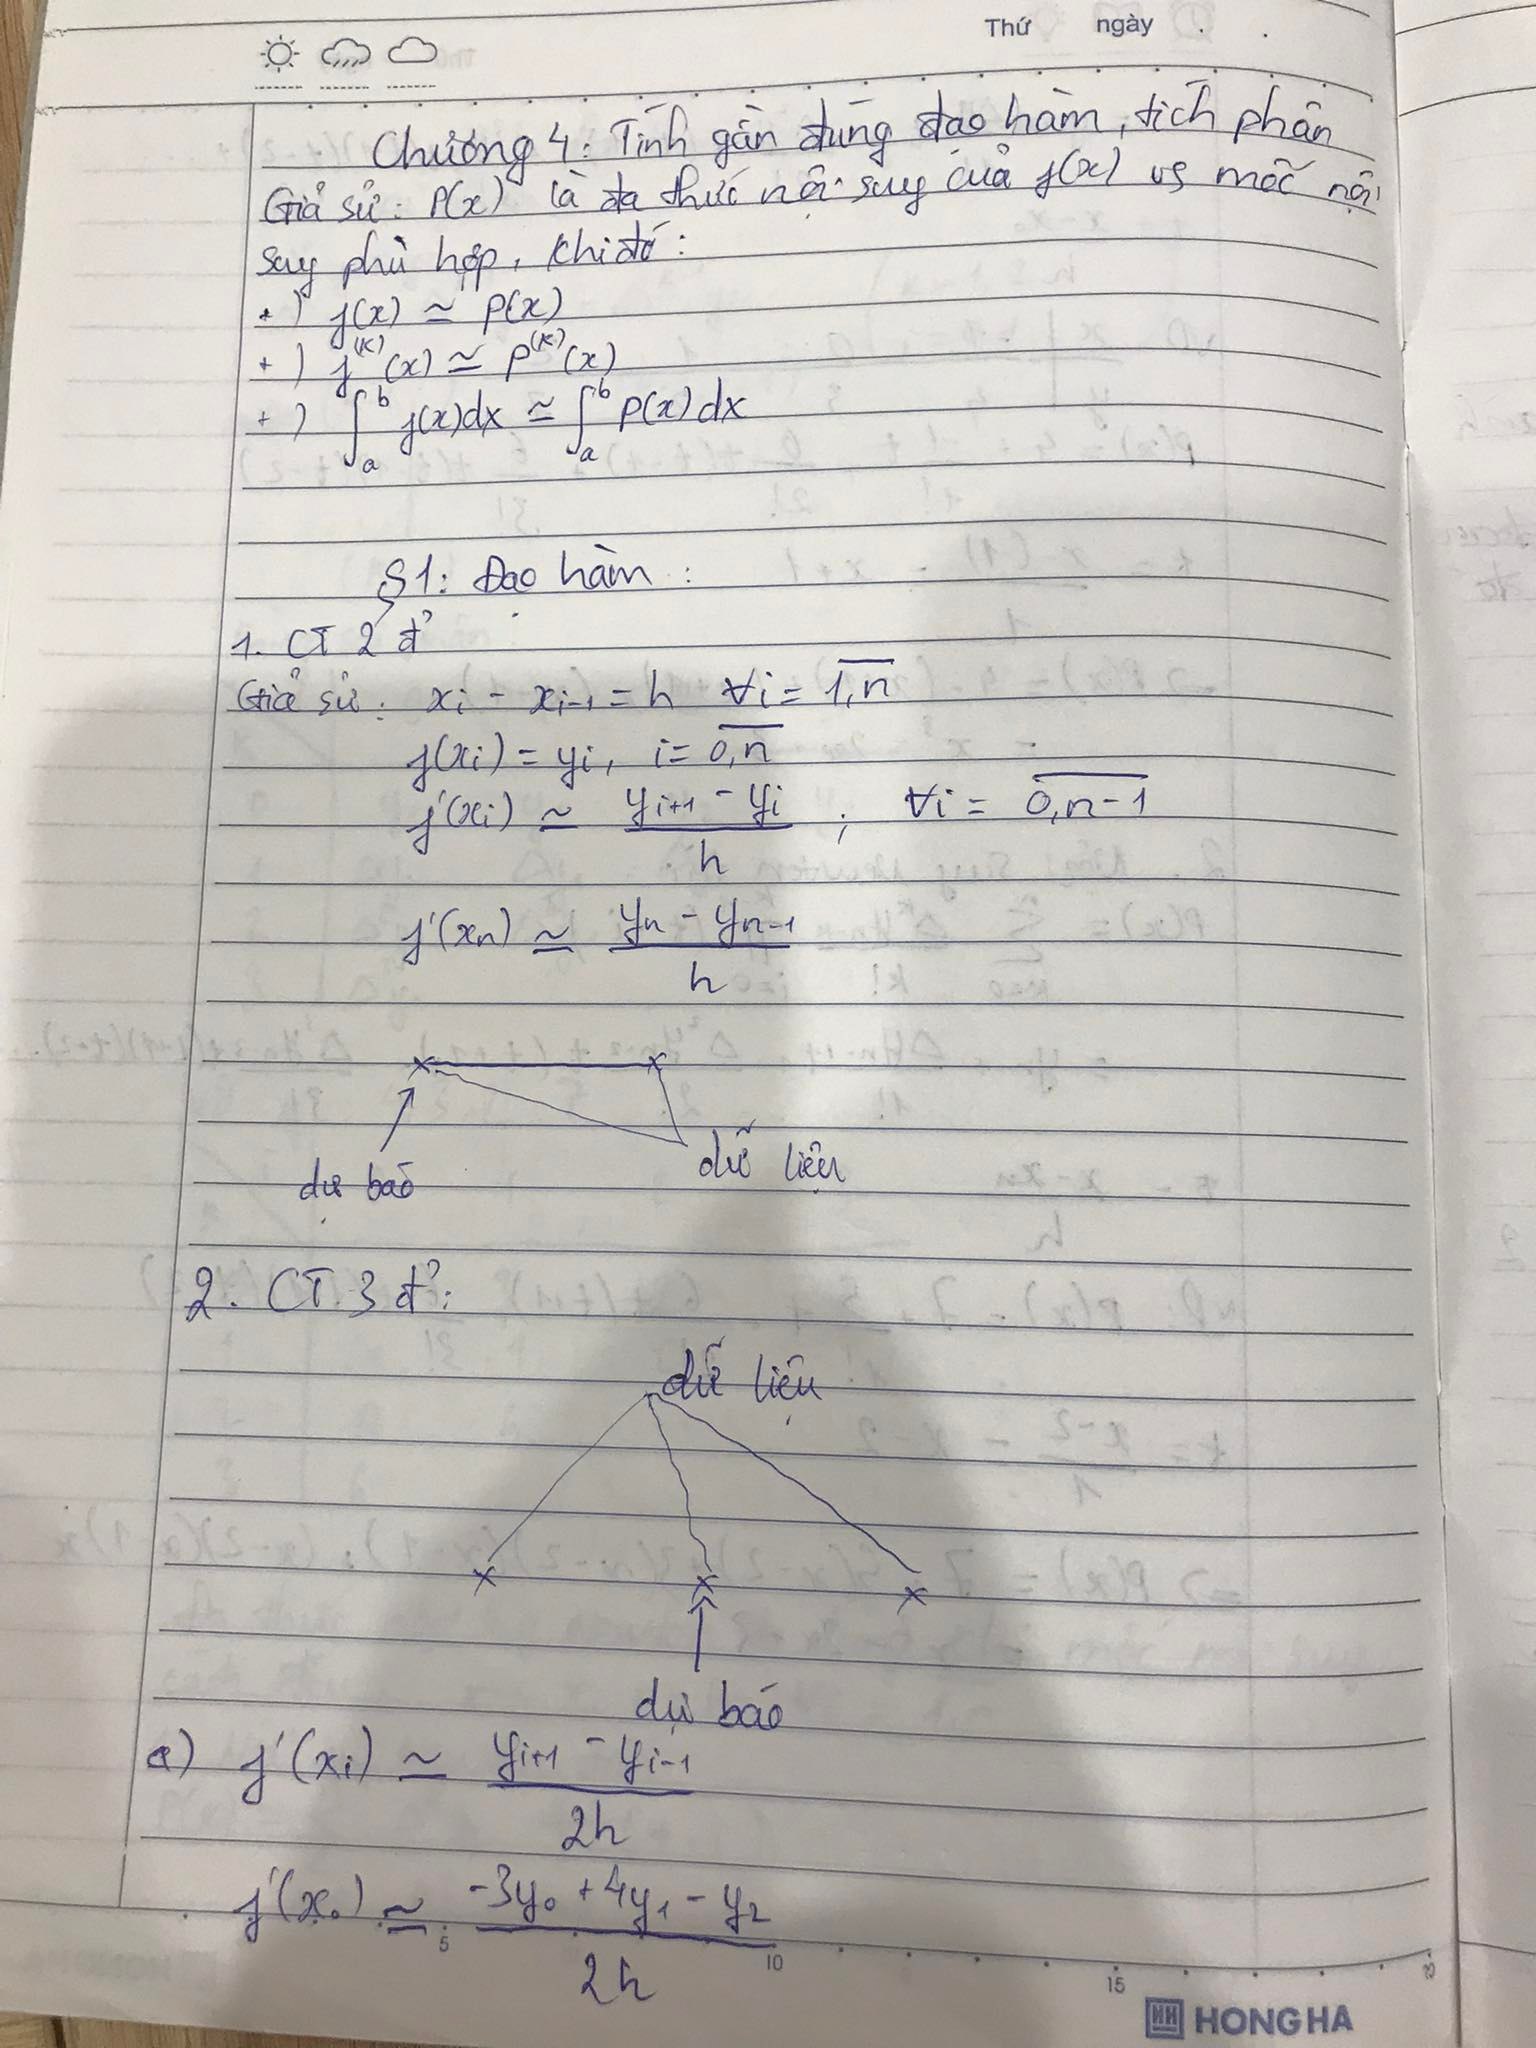 Thứ ngày . .
Chương 4: Tính gần đúng đạo hàm, tích phân
Giả sử: P(x) là đa thức nội suy của f(x) vs mốc nội
suy phù hợp, khi đó:
+) f(x) ≃ P(x)
+) f^(k)(x) ≃ P^(k)(x)
+) ∫_a^b f(x)dx ≃ ∫_a^b P(x)dx
§1: Đạo hàm:
1. CT 2 đ'
Giả sử: x_i - x_{i-1} = h ∀i = \overline{1,n}
f(x_i) = y_i, i = \overline{0,n}
f'(x_i) ≃ (y_{i+1} - y_i)/h ; ∀i = \overline{0,n-1}
f'(x_n) ≃ (y_n - y_{n-1})/h
dự báo dữ liệu
2. CT 3 đ':
dữ liệu
dự báo
a) f'(x_i) ≃ (y_{i+1} - y_{i-1})/2h
f'(x_0) ≃ (-3y_0 + 4y_1 - y_2)/2h
5 10 15
HH HONG HA